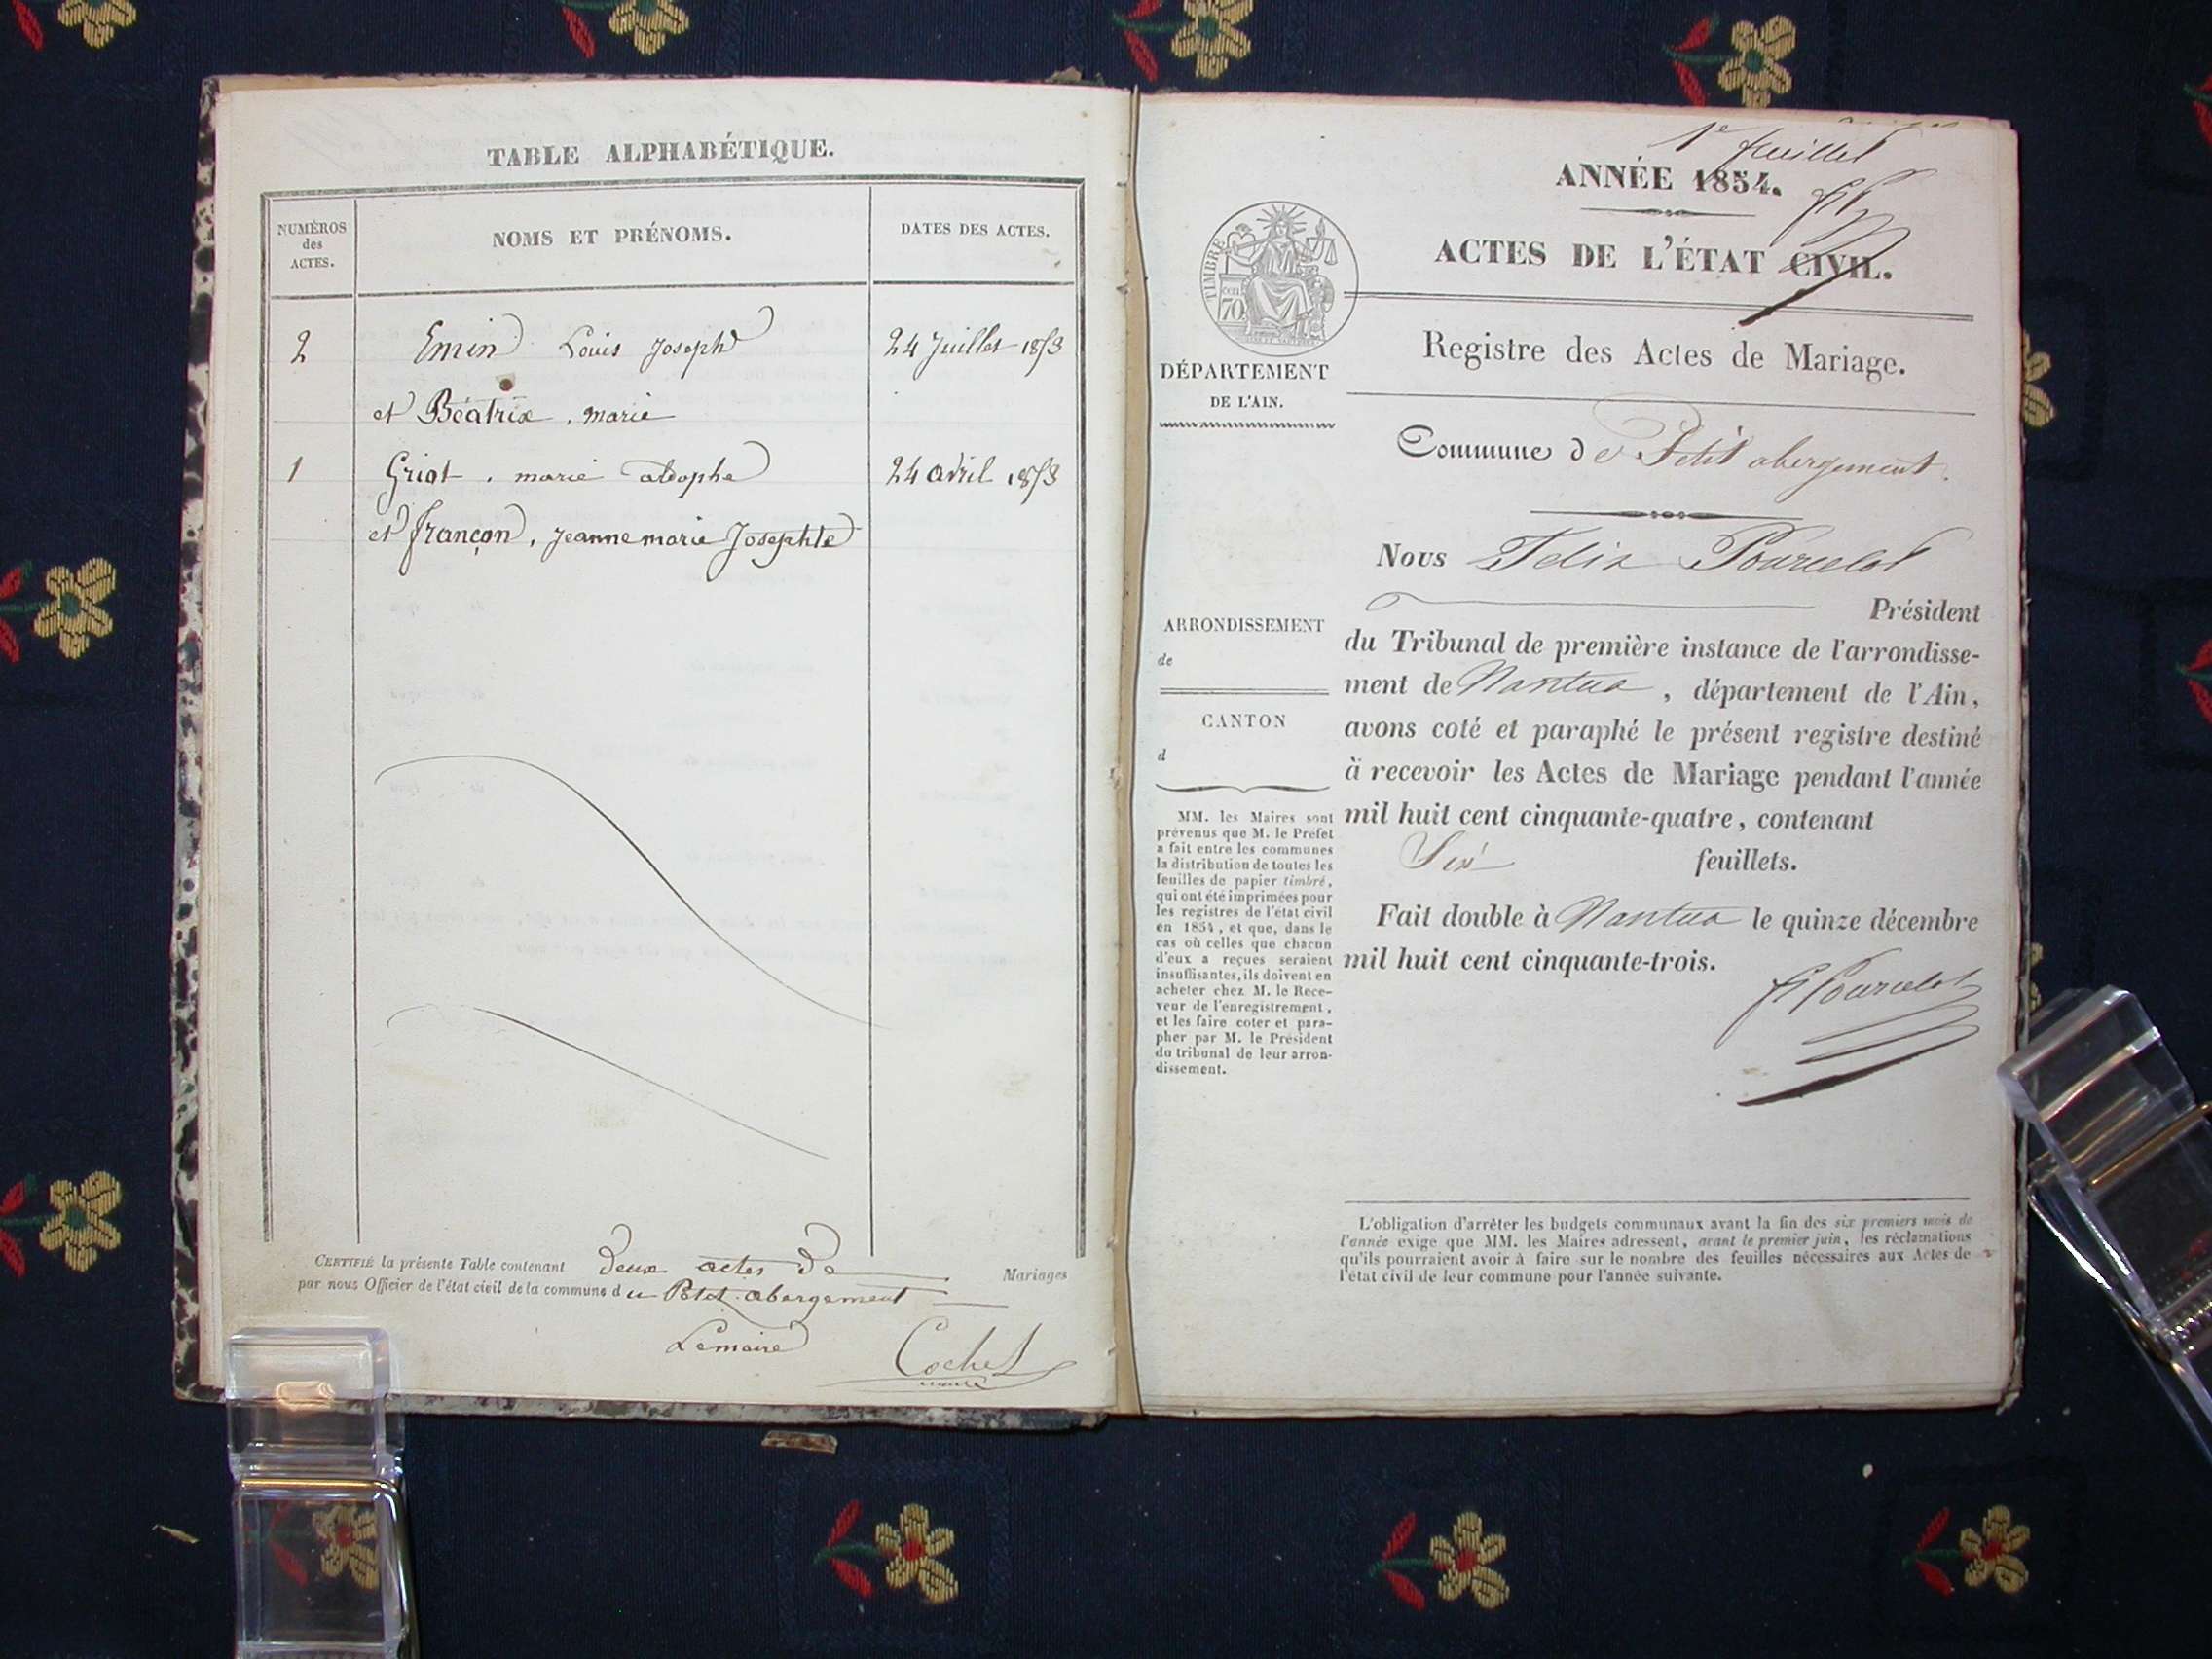 TABLE ALPHABÉTIQUE.
NUMÉROS
des
ACTES.
NOMS ET PRÉNOMS.
DATES DES ACTES.
2 Emin Louis Joseph 24 Juillet 1853
et Béatrix, marie
1 Griot, marie adophe 24 avril 1853
et françon, Jeanne marie Josephte
CERTIFIÉ la présente Table contenant deux actes de Mariages
par nous Officier de l'état civil de la commune du Petit abergement
Lemaire
Cochet
1e feuillet
ANNÉE 1854.
ACTES DE L'ÉTAT CIVIL.
TIMBRE
cen.
70
Registre des Actes de Mariage.
DÉPARTEMENT
DE L'AIN.
Commune de Petit abergement.
Nous Felix Pourcelot
Président
du Tribunal de première instance de l'arrondisse-
ment de Nantua, département de l'Ain,
avons coté et paraphé le présent registre destiné
à recevoir les Actes de Mariage pendant l'année
mil huit cent cinquante-quatre, contenant
Six feuillets.
Fait double à Nantua le quinze décembre
mil huit cent cinquante-trois.
F Pourcelot
ARRONDISSEMENT
de
CANTON
d
MM. les Maires sont
prévenus que M. le Préfet
a fait entre les communes
la distribution de toutes les
feuilles de papier timbré,
qui ont été imprimées pour
les registres de l'état civil
en 1854, et que, dans le
cas où celles que chacun
d'eux a reçues seraient
insuffisantes, ils doivent en
acheter chez M. le Rece-
veur de l'enregistrement,
et les faire coter et para-
pher par M. le Président
du tribunal de leur arron-
dissement.
L'obligation d'arrêter les budgets communaux avant la fin des six premiers mois de
l'année exige que MM. les Maires adressent, avant le premier juin, les réclamations
qu'ils pourraient avoir à faire sur le nombre des feuilles nécessaires aux Actes de
l'état civil de leur commune pour l'année suivante.